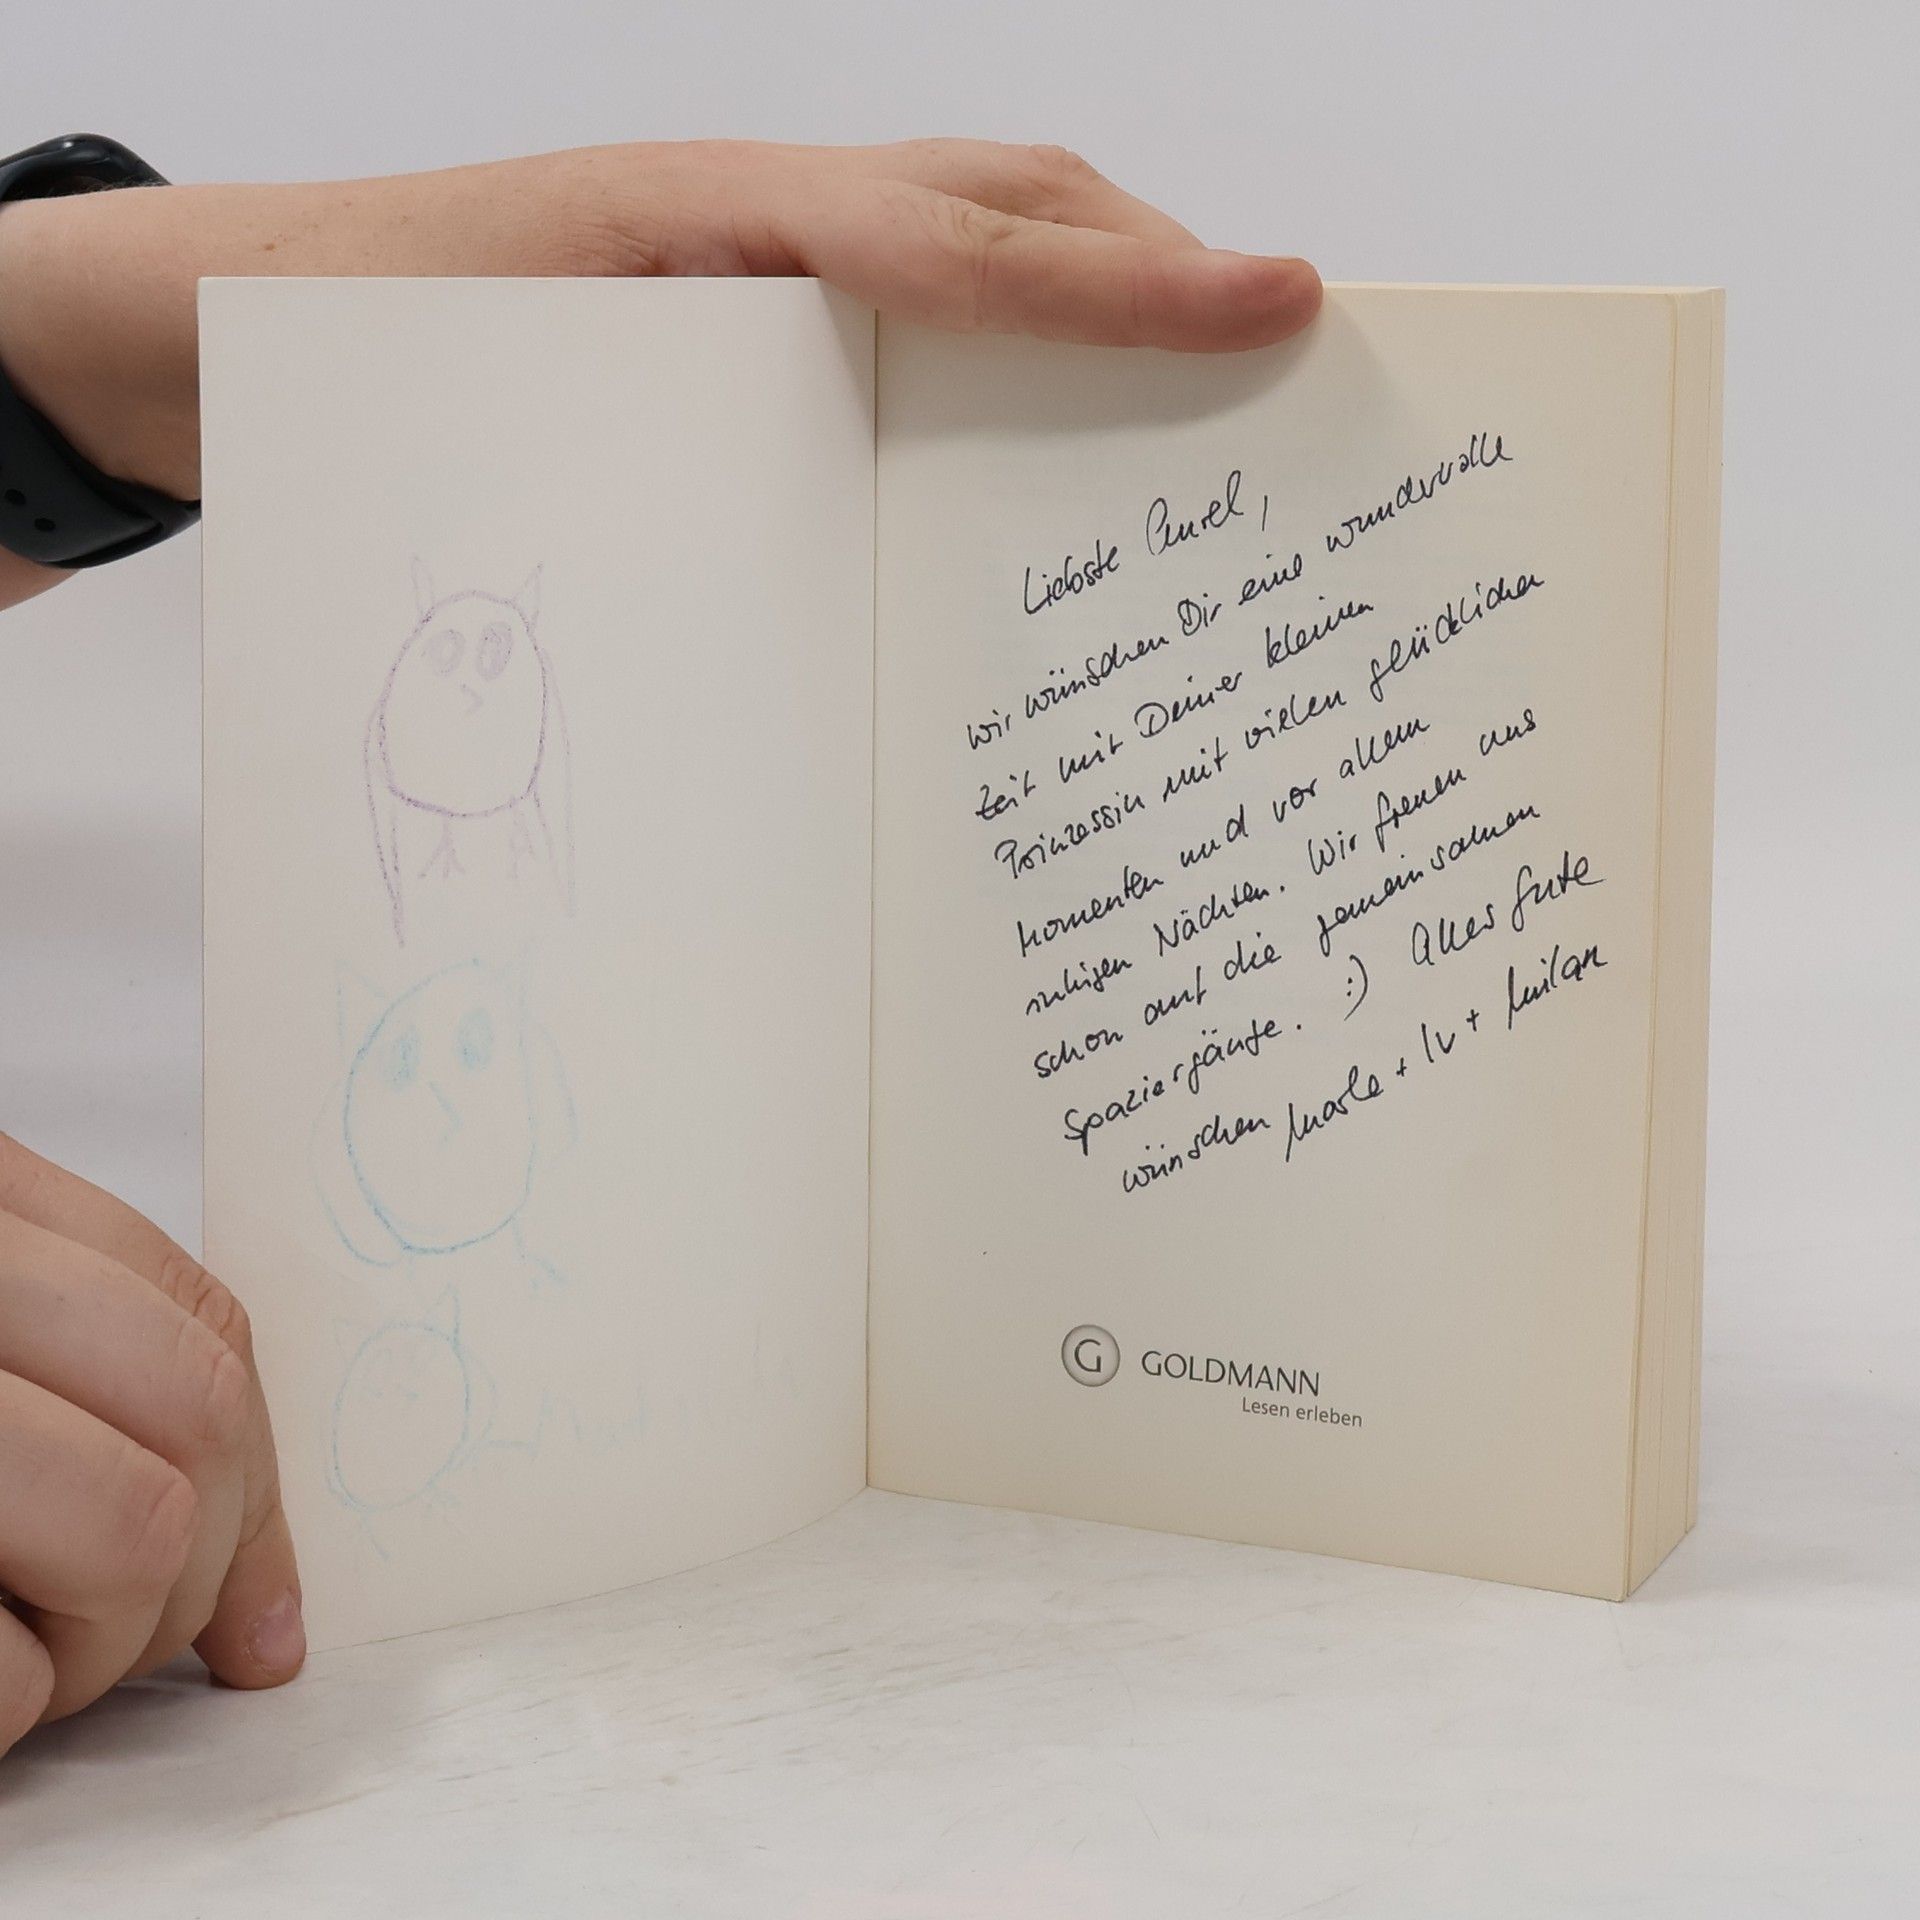 Liebste
wir wünschen Dir eine wundervolle
Zeit mit Deiner kleinen
Prinzessin mit vielen glücklichen
Momenten und vor allem
ruhigen Nächten. Wir freuen uns
schon auf die gemeinsamen
Spaziergänge. :) Alles Gute
wünschen + + Milan
G GOLDMANN
Lesen erleben